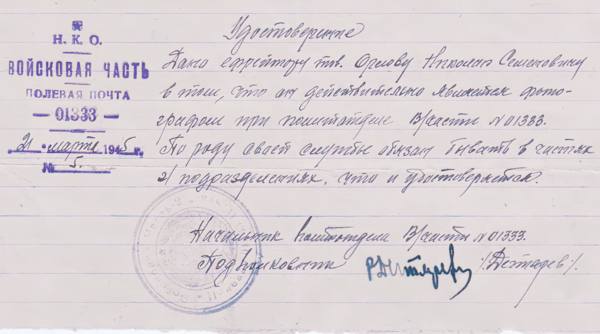 Н. К. О.
ВОЙСКОВАЯ ЧАСТЬ
ПОЛЕВАЯ ПОЧТА
— 01333 —
21 марта 1945 г.
№ 5.
Удостоверение
Дано ефрейтору тов. Орлову Николаю Семеновичу
в том, что он действительно является фото-
графом при политотделе В/части №01333.
По роду своей службы обязан бывать в частях
и подразделениях, что и удостоверяется.
Начальник политотдела В/части №01333.
Подполковник